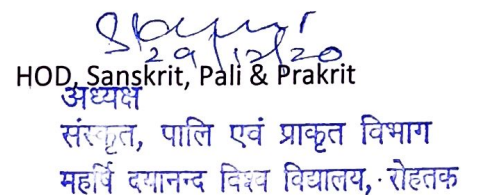 29/12/20
HOD, Sanskrit, Pali & Prakrit
अध्यक्ष
संस्कृत, पालि एवं प्राकृत विभाग
महर्षि दयानन्द विश्व विद्यालय, रोहतक